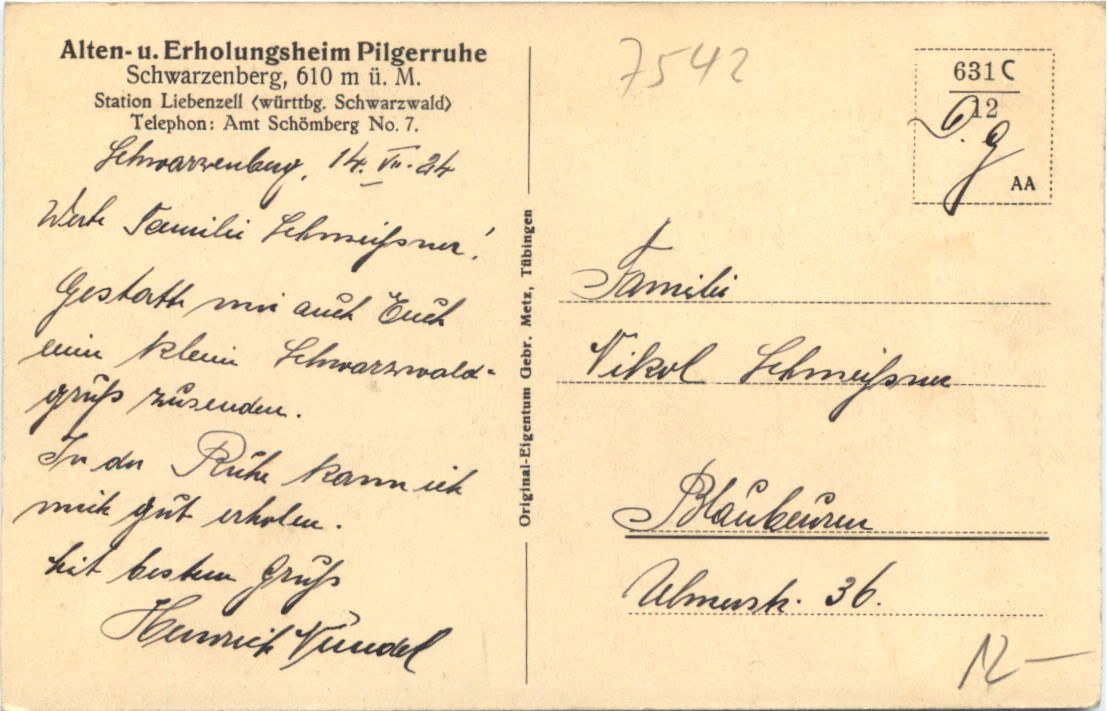 Alten- u. Erholungsheim Pilgerruhe
Schwarzenberg, 610 m ü. M.
Station Liebenzell (württbg. Schwarzwald)
Telephon: Amt Schömberg No. 7.
Schwarzenberg, 14. VII. 24
Werte Familie Schmeißner!
Gestatte mir auch Euch
einen kleinen Schwarzwald-
gruß zusenden.
In der Ruhe kann ich
mich gut erholen.
Mit bestem Gruß
Heinrich Nündel
Original-Eigentum Gebr. Metz, Tübingen
7542
631 C
12
D. g
AA
Familie
Nikol Schmeißner
Blaubeuren
Ulmerstr. 36.
12 —